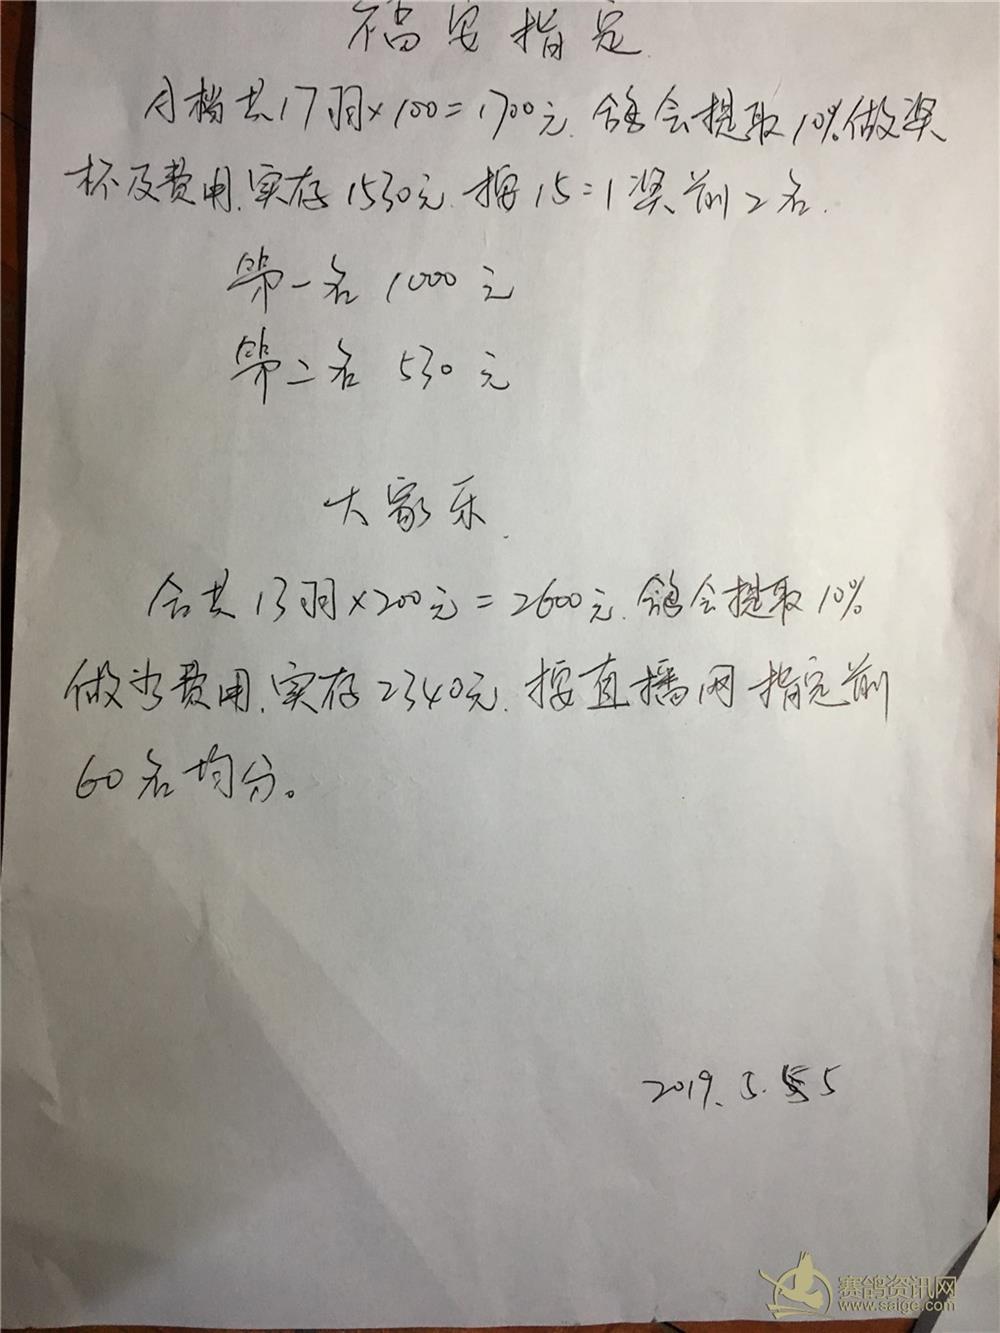 福安指定
月档共17羽×100=1700元.鸽会提取10%做奖
杯及费用.实存1530元.按15=1奖前2名.
第一名 1000元
第二名 530元
大家乐.
合共13羽×200元=2600元.鸽会提取10%
做为费用.实存2340元.按直播网指定前
60名均分。
2019.5.5
赛鸽资讯网
www.saige.com